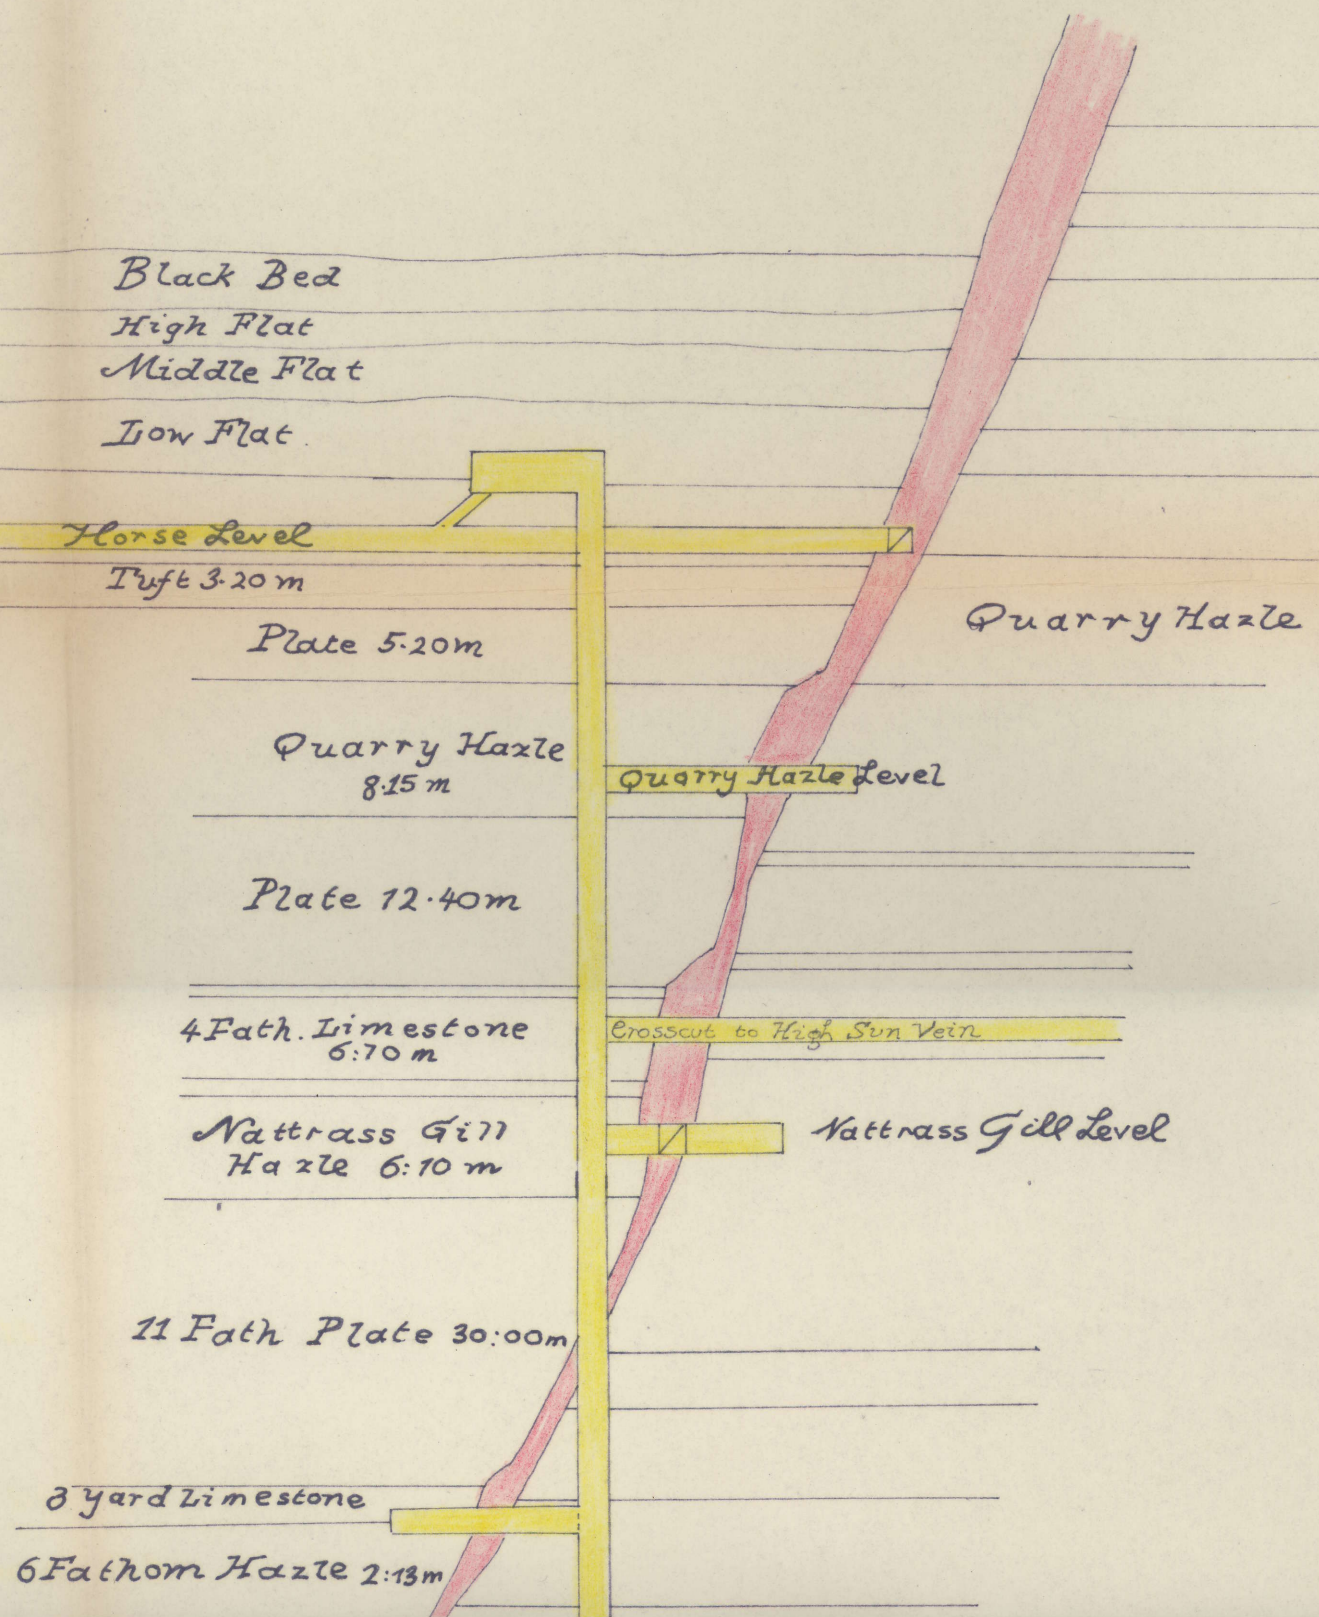 Black Bed
High Flat
Middle Flat
Low Flat.
Horse Level
Tuft 3.20 m
Quarry Hazle
Plate 5.20m
Quarry Hazle
8.15 m
Quarry Hazle Level
Plate 12.40m
4 Fath. Limestone
6:70 m
Crosscut to High Sun Vein
Nattrass Gill
Hazle 6:10 m
Nattrass Gill Level
11 Fath Plate 30:00m
3 Yard Limestone
6 Fathom Hazle 2:13m